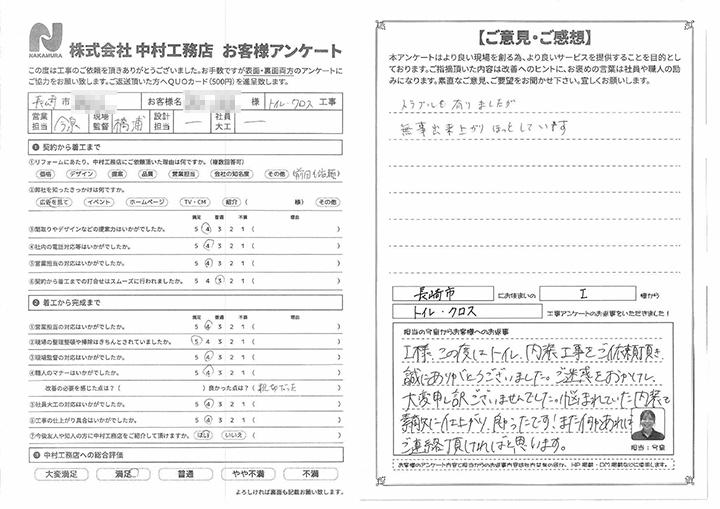 NAKAMURA
株式会社 中村工務店 お客様アンケート
この度は工事のご依頼を頂きありがとうございました。お手数ですが表面・裏面両方のアンケートに
ご協力をお願い致します。ご返送頂いた方へQUOカード(500円)を進呈致します。
長崎 市 お客様名 様 トイレ・クロス 工事
営業担当 今泉 現場監督 橋浦 設計担当 ー 社員大工 ー
❶ 契約から着工まで
①リフォームにあたり、中村工務店にご依頼頂いた理由は何ですか。(複数回答可)
価格 デザイン 提案 品質 営業担当 会社の知名度 その他
②弊社を知ったきっかけは何ですか。
広告を見て イベント ホームページ TV・CM 紹介( 様) その他
満足 普通 不満 理由
③間取りやデザインなどの提案力はいかがでしたか。 5 4 3 2 1 ( )
④社内の電話対応等はいかがでしたか。 5 4 3 2 1 ( )
⑤営業担当の対応はいかがでしたか。 5 4 3 2 1 ( )
⑥契約から着工までの打合せはスムーズに行われましたか。 5 4 3 2 1 ( )
❷ 着工から完成まで
満足 普通 不満 理由
①営業担当の対応はいかがでしたか。 5 4 3 2 1 ( )
②現場の整理整頓や掃除はきちんとされていましたか。 5 4 3 2 1 ( )
③現場監督の対応はいかがでしたか。 5 4 3 2 1 ( )
④職人のマナーはいかがでしたか。 5 4 3 2 1 ( )
改善の必要を感じた点は?( ) 良かった点は?( 親切だった )
⑤社員大工の対応はいかがでしたか。 5 4 3 2 1 ( )
⑥工事の仕上がり具合はいかがでしたか。 5 4 3 2 1 ( )
⑦今後友人や知人の方に中村工務店をご紹介して頂けますか。 はい いいえ ( )
❸ 中村工務店への総合評価
大変満足 満足 普通 やや不満 不満
よろしければ裏面も記載お願い致します。
【ご意見・ご感想】
本アンケートはより良い現場を創る為、より良いサービスを提供することを目的とし
ております。ご指摘頂いた内容は改善へのヒントに、お褒めの言葉は社員や職人の励
みになります。素直なご意見、ご要望をお聞かせ下さい。宜しくお願いします。
トラブルも有りましたが
無事出来上がりほっとしています
長崎市 にお住まいの I 様から
トイレ・クロス 工事アンケートのお返事をいただきました!
担当の今泉からお客様へのお返事
I様、この度はトイレ、内装工事をご依頼頂き
誠にありがとうございました。ご迷惑をおかけして、
大変申し訳ございませんでした。悩まれていた内装も
素敵に仕上がり、良かったです!また何かあれば
ご連絡頂ければと思います。
担当:今泉